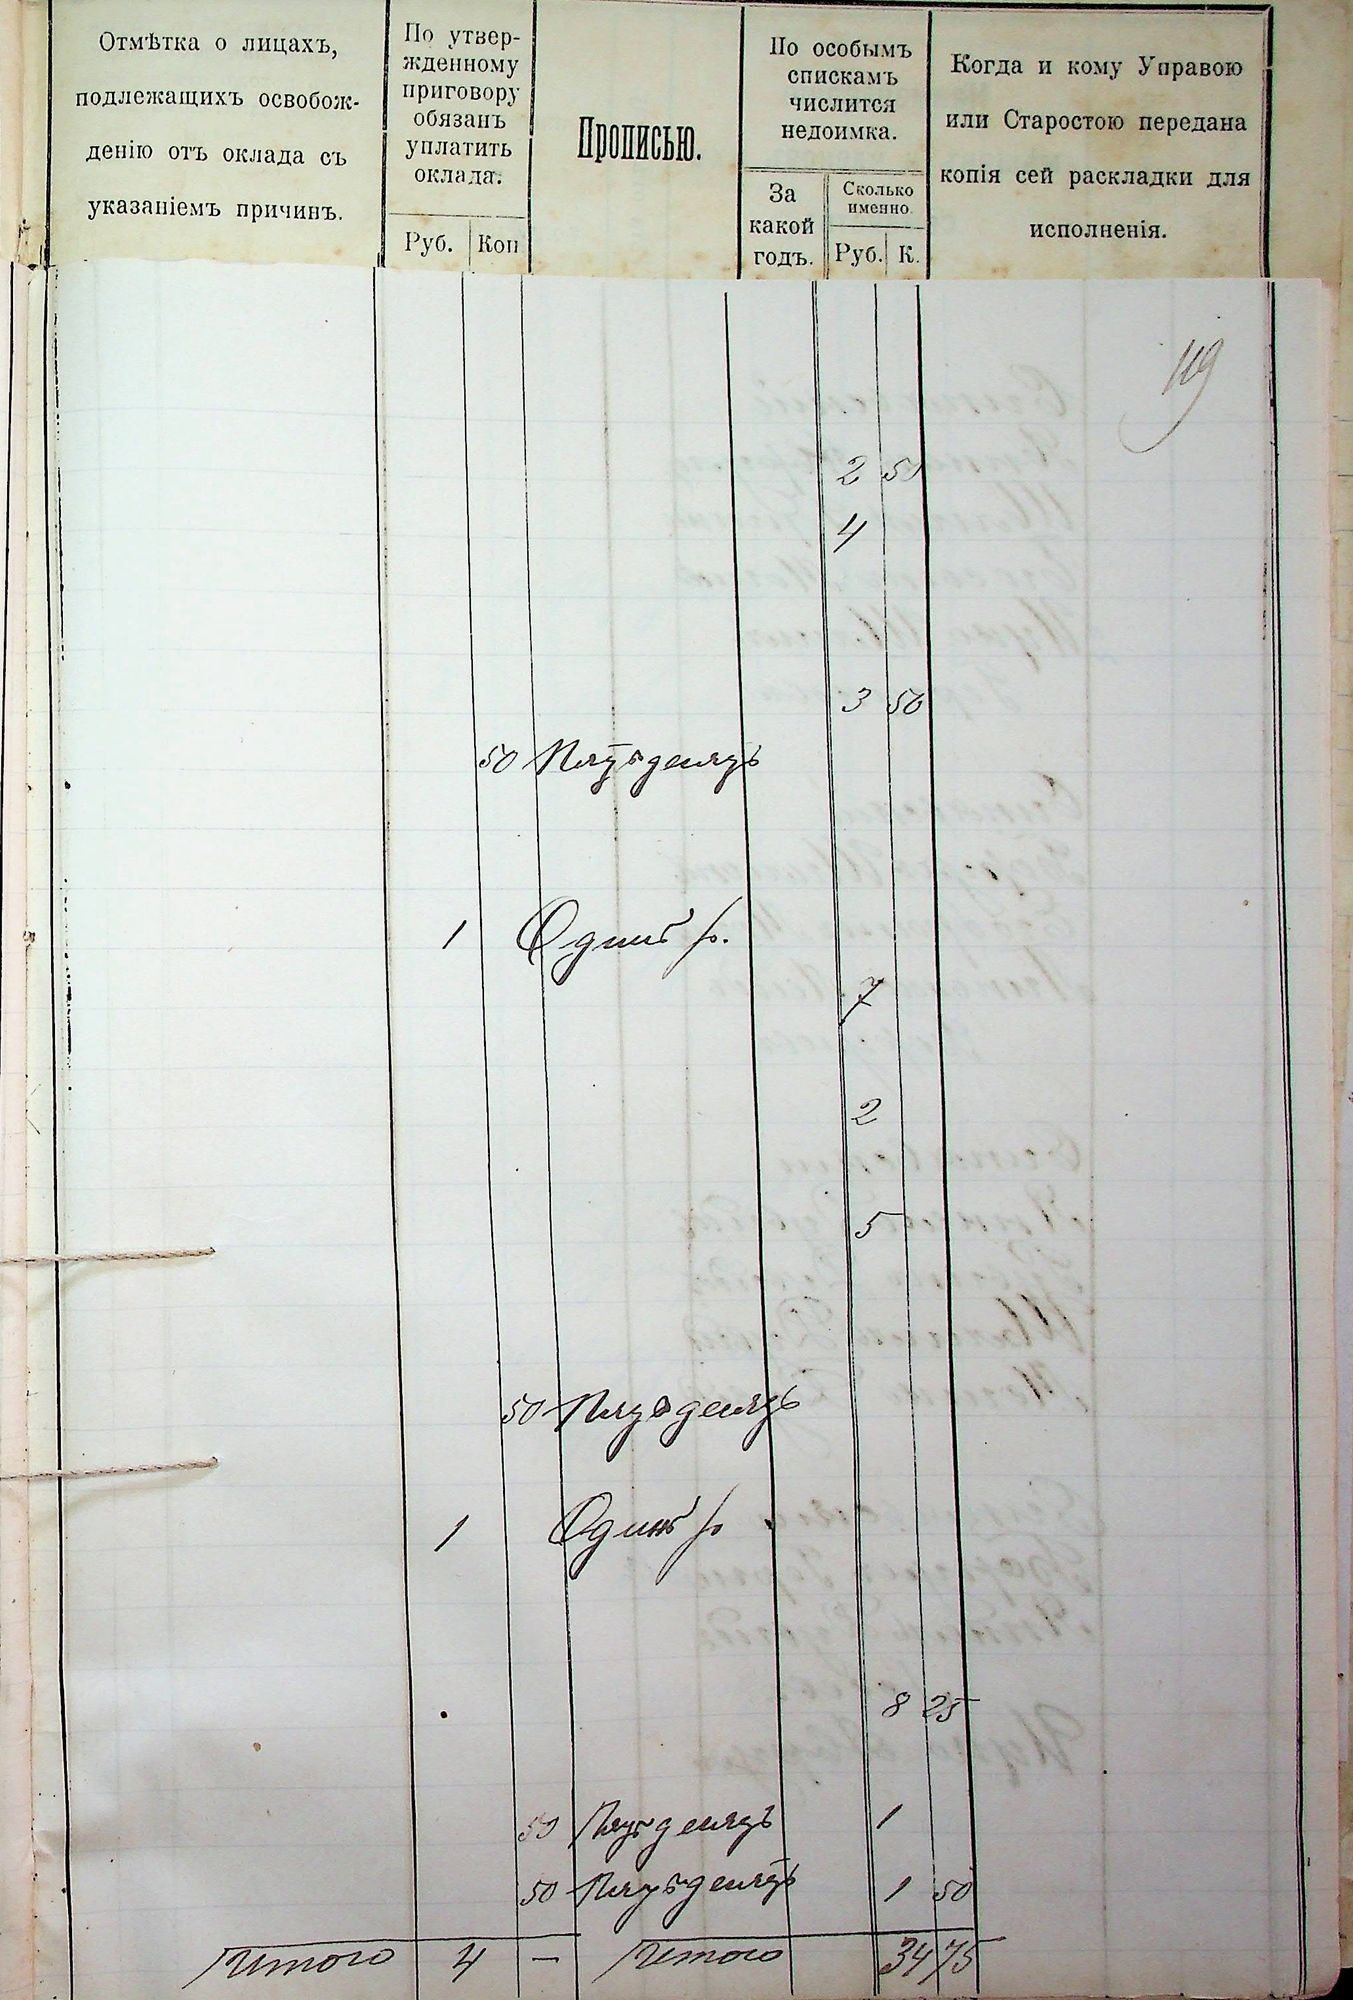 Отмѣтка о лицахъ,
подлежащихъ освобож-
денію отъ оклада съ
указаніемъ причинъ.
По утвер-
жденному
приговору
обязанъ
уплатить
оклада.
Руб. Коп
Прописью.
По особымъ
спискамъ
числится
недоимка.
За
какой
годъ.
Сколько
именно
Руб. К.
Когда и кому Управою
или Старостою передана
копія сей раскладки для
исполненія.
119
2 50
4
3 50
50 Пятьдесятъ
1 Одинъ р.
7
2
5
50 Пятьдесятъ
1 Одинъ р
8 25
50 Пятьдесятъ 1
50 Пятьдесятъ 1 50
Итого 4 — Итого 34 75